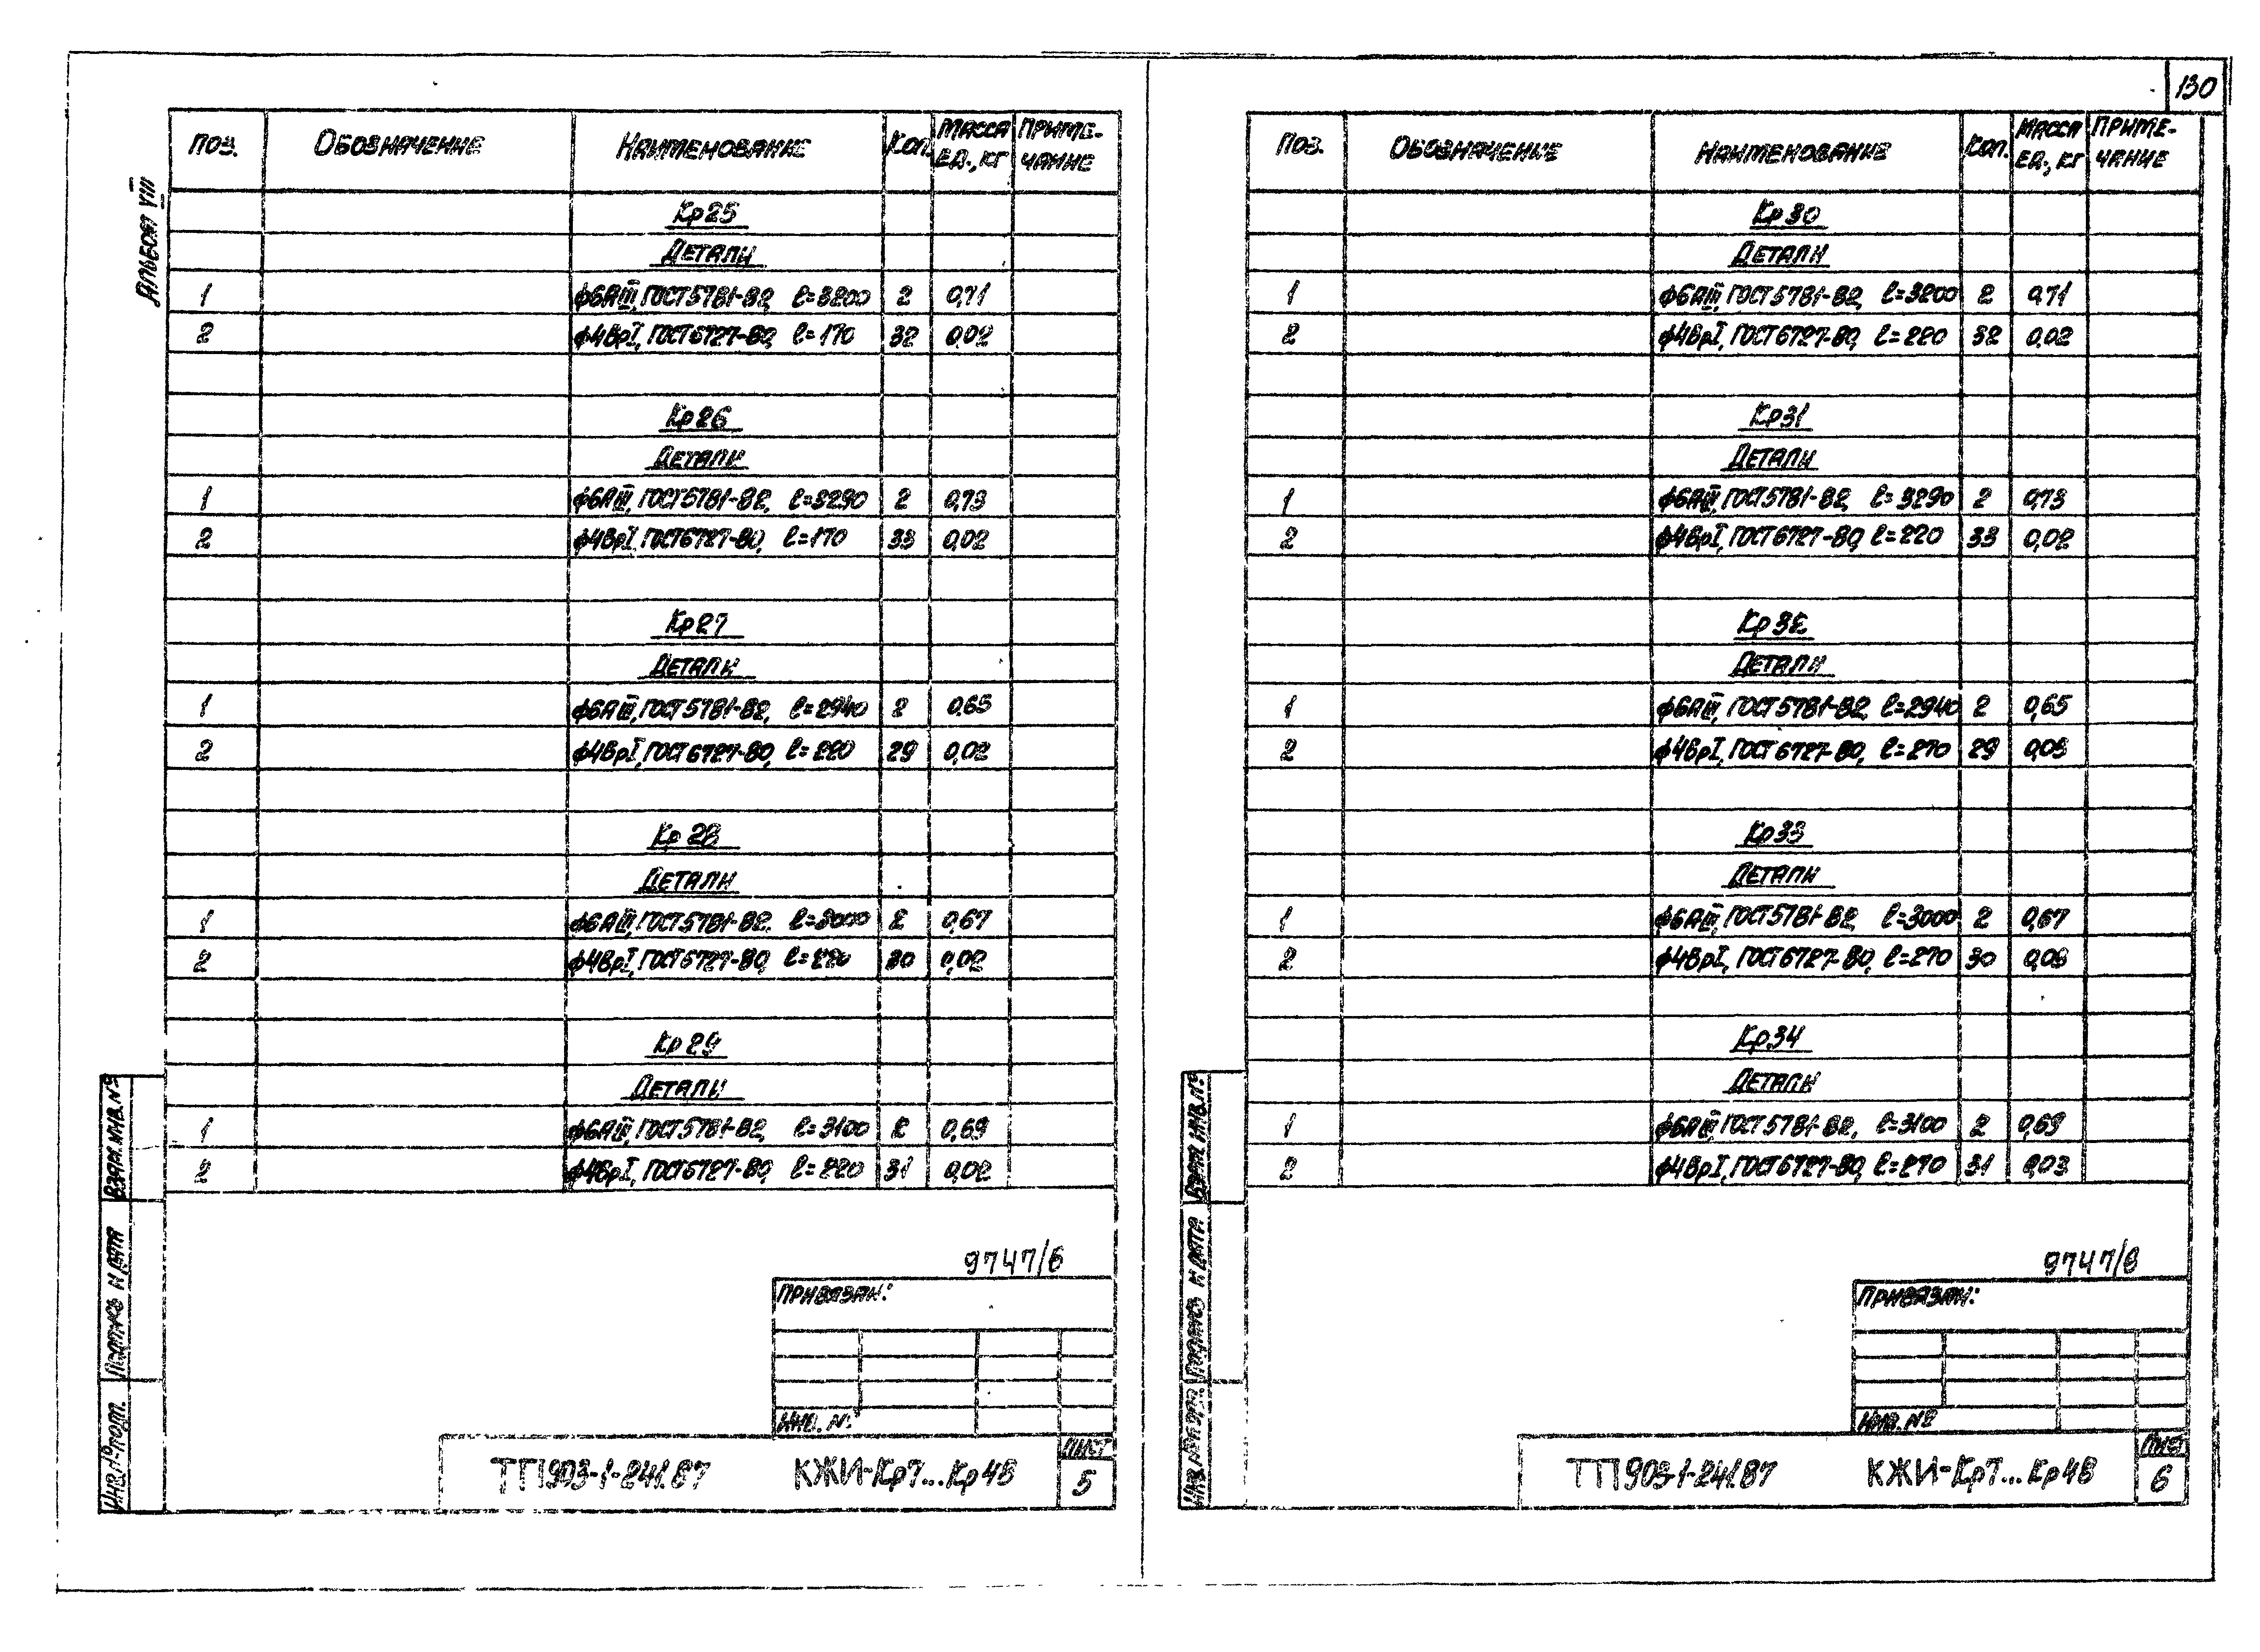 130
Альбом VIII
Поз. Обозначение Наименование Кол. Масса ед., кг Приме-чание
Кр25
Детали
1 ф6АIII, ГОСТ 5781-82, ℓ=3200 2 0,71
2 ф4ВрI, ГОСТ 6727-80, ℓ=170 32 0,02
Кр26
Детали
1 ф6АIII, ГОСТ 5781-82, ℓ=3290 2 0,73
2 ф4ВрI, ГОСТ 6727-80, ℓ=170 33 0,02
Кр27
Детали
1 ф6АIII, ГОСТ 5781-82, ℓ=2940 2 0,65
2 ф4ВрI, ГОСТ 6727-80, ℓ=220 29 0,02
Кр28
Детали
1 ф6АIII, ГОСТ 5781-82, ℓ=3000 2 0,67
2 ф4ВрI, ГОСТ 6727-80, ℓ=220 30 0,02
Кр29
Детали
1 ф6АIII, ГОСТ 5781-82, ℓ=3100 2 0,69
2 ф4ВрI, ГОСТ 6727-80, ℓ=220 31 0,02
Взам. инв. №
Подпись и дата
Инв. № подл.
9747/8
Привязан:
Инв. №
ТП 903-1-241.87 КЖИ-Кр7...Кр48
Лист
5
Поз. Обозначение Наименование Кол. Масса ед., кг Приме-чание
Кр30
Детали
1 ф6АIII, ГОСТ 5781-82, ℓ=3200 2 0,71
2 ф4ВрI, ГОСТ 6727-80, ℓ=220 32 0,02
Кр31
Детали
1 ф6АIII, ГОСТ 5781-82, ℓ=3290 2 0,73
2 ф4ВрI, ГОСТ 6727-80, ℓ=220 33 0,02
Кр32
Детали
1 ф6АIII, ГОСТ 5781-82, ℓ=2940 2 0,65
2 ф4ВрI, ГОСТ 6727-80, ℓ=270 29 0,03
Кр33
Детали
1 ф6АIII, ГОСТ 5781-82, ℓ=3000 2 0,67
2 ф4ВрI, ГОСТ 6727-80, ℓ=270 30 0,03
Кр34
Детали
1 ф6АIII, ГОСТ 5781-82, ℓ=3100 2 0,69
2 ф4ВрI, ГОСТ 6727-80, ℓ=270 31 0,03
Взам. инв. №
Подпись и дата
Инв. № подл.
9747/8
Привязан:
Инв. №
ТП 903-1-241.87 КЖИ-Кр7...Кр48
Лист
6